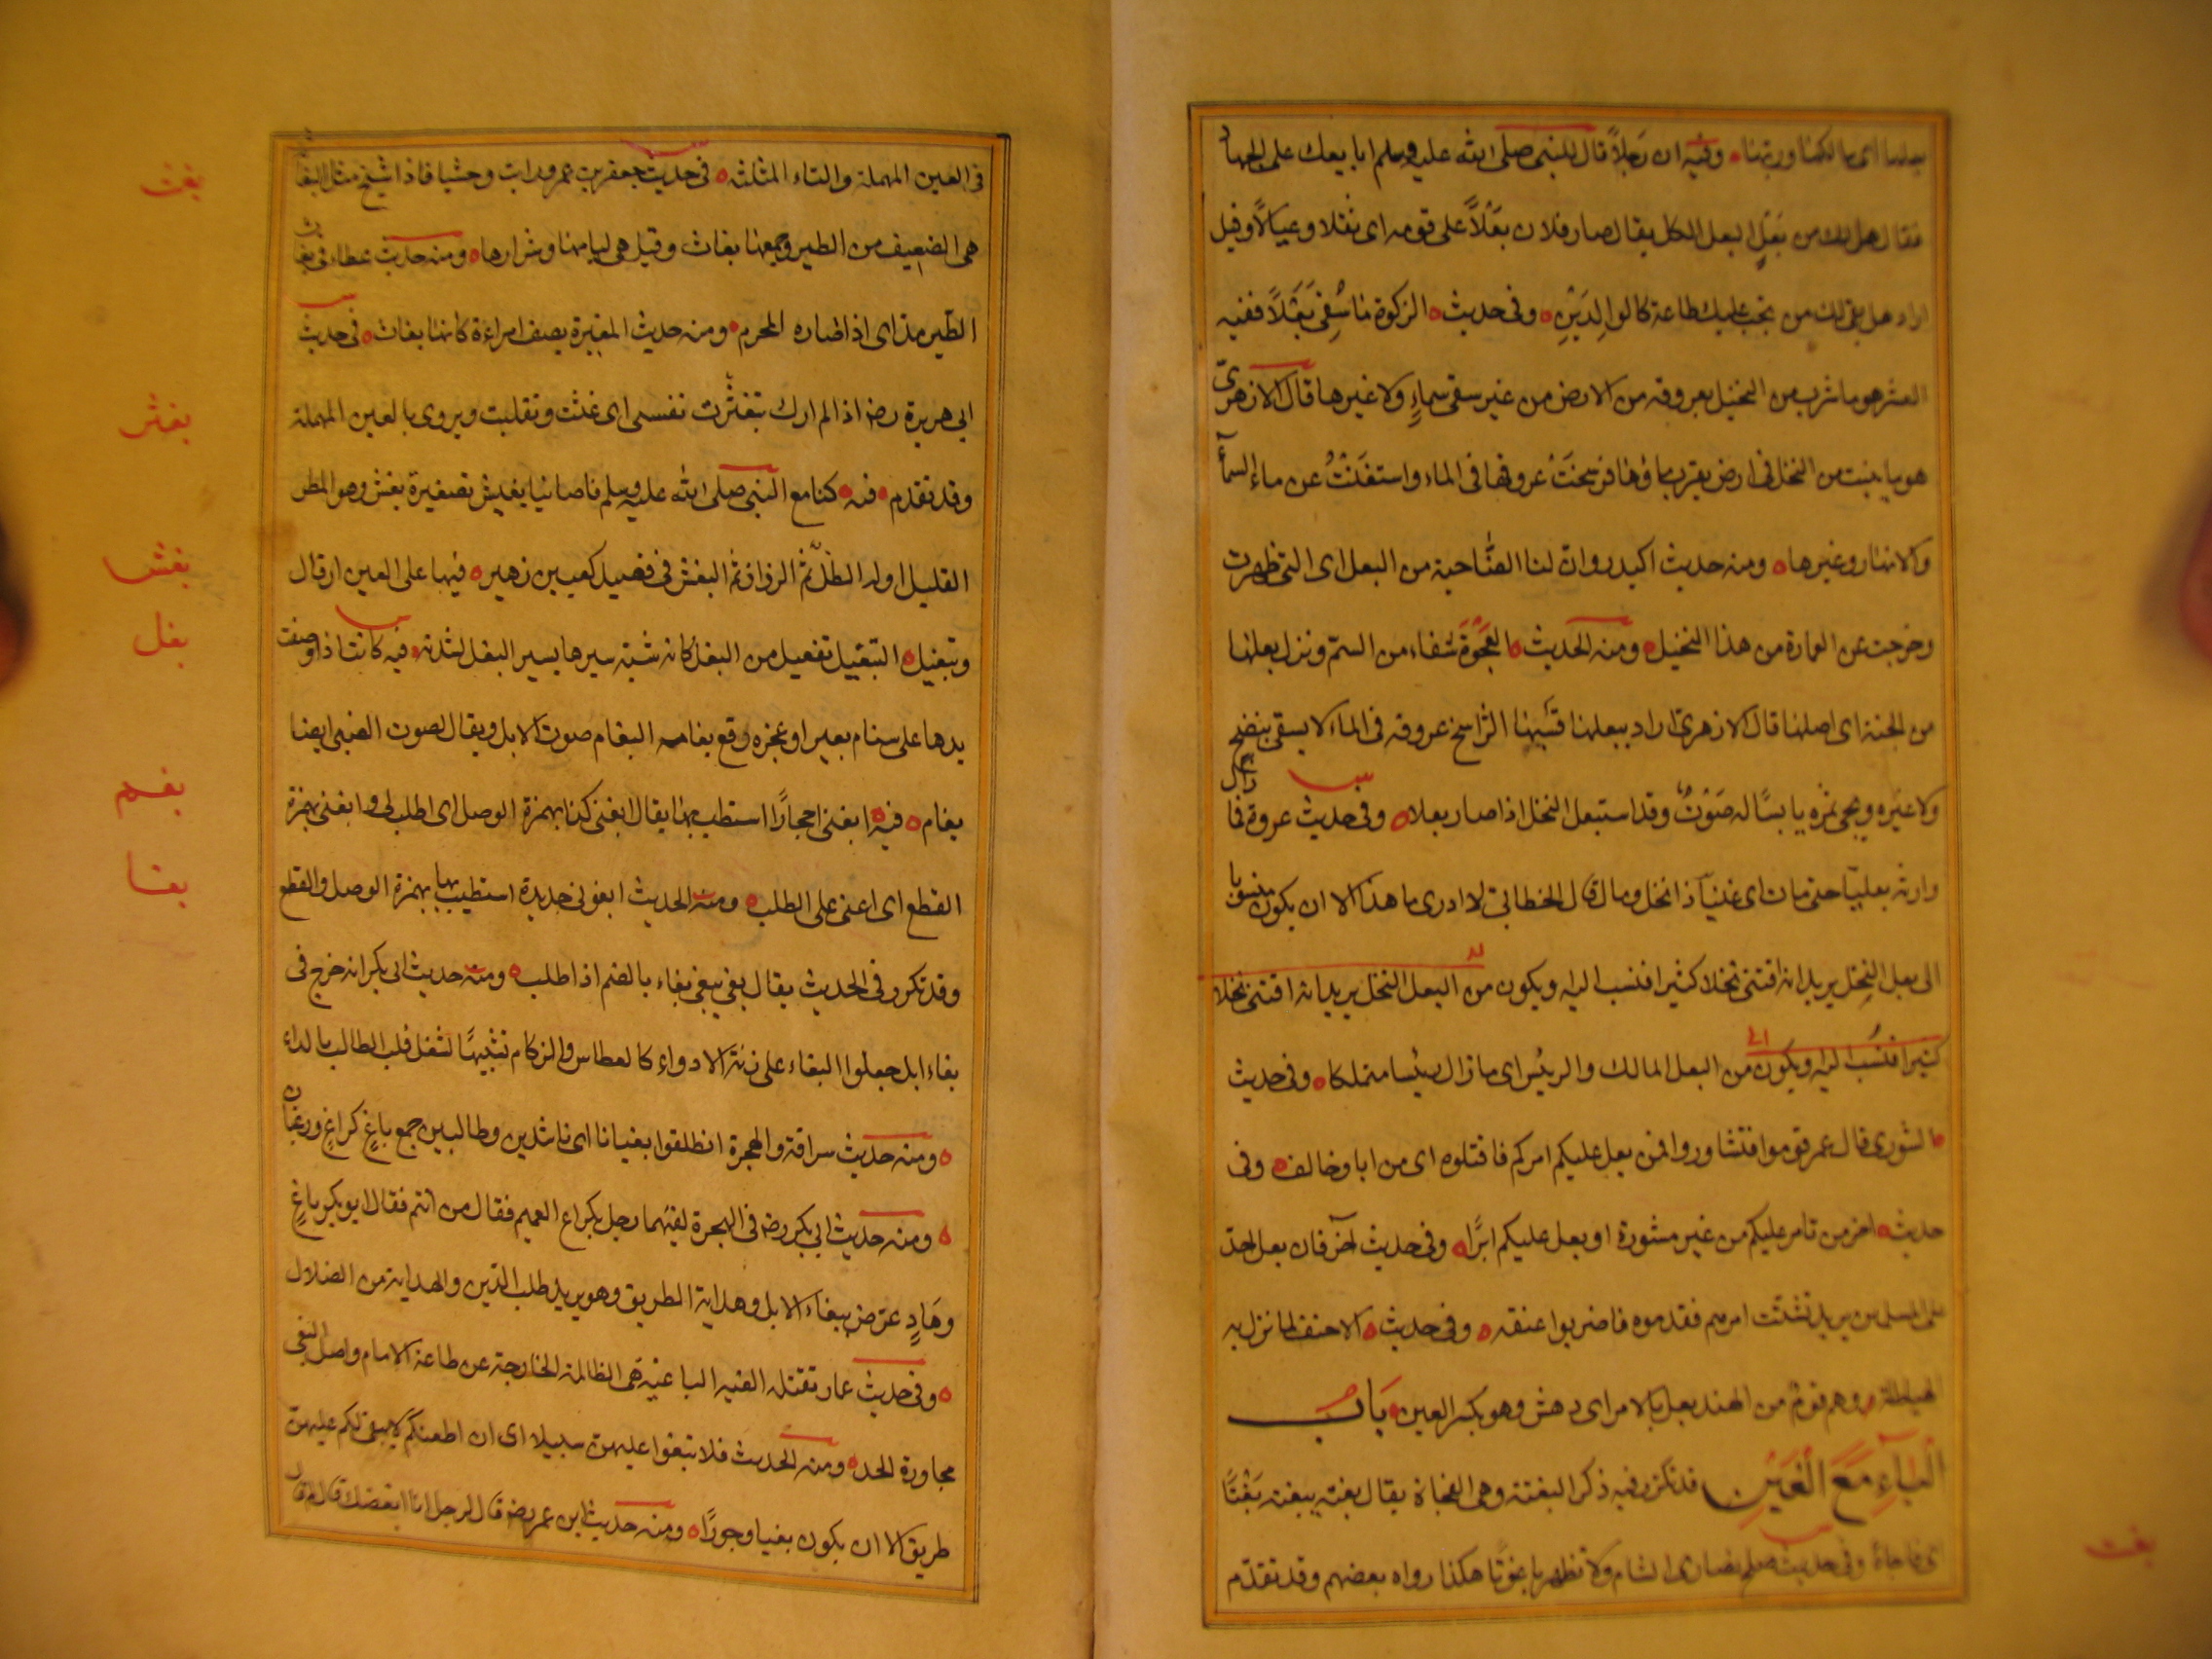 بعلها اى مالكها وربها ه وفيه ان رجلاً قال للنبى صلى الله عليه وسلم ابايعك على الجهاد
فقال هل لك من بَعْلٍ البعل الكل يقال صار فلان بَعْلاً على قومه اى ثقلا وعيالاً وقيل
اراد هل بقى لك من تجب عليك طاعته كالوالِدَيْنِ ه وفى حديث ه الزكوة ما سُقِىَ بَعْلاً ففيه
العشر هو ما شرب من النخيل بعروقه من الارض من غير سقى سماءٍ ولا غيرها قال الازهرىّ
هو ما ينبت من النخل فى ارض يقرب ماؤها فرسخَتْ عروقها فى الماء واستغنَتْ عن ماء السمآء
والانهار وغيرها ه ومنه حديث اكيدر وانّ لنا الضّاحية من البعل اى التى ظهرت
وخرجت عن العمارة من هذا النخيل ه ومنه الحديث ه العَجْوَةُ شفاء من السمّ ونزل بعلها
من الجنة اى اصلها قال الازهرىّ اراد ببعلها قَسْبها الراسخ عروقه فى الماء لا يسقى بنضح
ولا غيره ويجى ثمره يابسًا له صَوْتٌ وقد استبعل النخل اذا صار بعلا ه وفى حديث عروة فما زال
وارثه بعليّا حتى مات اى غنيّا ذا نخل ومال قال الخطابى لا ادرى ما هذا الا ان يكون منسوبا
الى بعل النخل يريد انه اقتنى نخلا كثيرا فنسب اليه ويكون من البعل النخل يريد انه اقتنى نخلا
كثيرا فنسب اليه ويكون من البعل المالك والرئيس اى مازال رئيسا متملكا ه وفى حديث
ه الشورى قال عمر قوموا فتشاوروا فمن بعل عليكم امركم فاقتلوه اى من ابا وخالف ه وفى
حديث ه اخر من تامر عليكم من غير مشورة او بعل عليكم امرًا ه وفى حديث اخر فان بعل احد
على المسلمين يريد تشتّت امرهم فقدموه فاضربوا عنقه ه وفى حديث ه الاحنف لما نزل به
الهياطلة وهم قومٌ من الهند بعل بالامر اى دهش وهو بكسر العين ه بَابُ
الْبَاءِ مَعَ الْغَيْنِ قد تكرر فيه ذكر البغتة وهى الفجاة يقال بغته يبغته بَغْتًا
اى فاجاه وفى حديث صلح نصارى الشام ولا تظهر باغوتًا هكذا رواه بعضهم وقد تقدّم
بغت
فى العين المهملة والثاء المثلثة ه فى حديث جعفر بن عمرو رايت وحشيا فاذا شيخ مثل البغاثة
هى الضعيف من الطير وجمعها بغاث وقيل هى ليامها وشرارها ه ومنه حديث عطاء فى بغاث
الطّير مدّ اى اذا صاده المحرم ه ومنه حديث المغيرة يصف امراءة كانها بغاث ه فى حديث
ابى هريرة رضه اذا لم ارك تبغثرت نفسى اى غثت وتقلبت ويروى بالعين المهملة
وقد تقدم ه فيه ه كنا مع النبى صلى الله عليه وسلم فاصابنا بغيش تصغيرة بغش وهو المطر
القليل اوله الطلّ ثم الرذاذ ثم البغش فى قصيد كعب بن زهير ه فيها على الاين ارقال
وتبغيل ه التبغيل تفعيل من البغل كانه شبه سيرها بسير البغل لشدته ه فيه كانت اذا وضعت
يدها على سنام بعير او عجزه وقع بغامه البغام صوت الابل ويقال لصوت الظبى ايضا
بغام ه فيه ه ابغنى احجارًا استطب بها يقال ابغنى كذا بهمزة الوصل اى اطلب لى وابغنى بهمزة
القطع اى اعنى على الطلب ه ومنه الحديث ابغونى حديدة استطيب بها بهمزة الوصل والقطع
وقد تكرر فى الحديث يقال بغى يبغى بغاء بالضم اذا طلب ه ومنه حديث ابى بكر انه خرج فى
بغاء ابل جعلوا البغاء على زنة الادواء كالعطاس والزكام تشبيهًا لشغل قلب الطالب بالداء
ه ومنه حديث سراقة والهجرة انطلقوا بغيانا اى ناشدين وطالبين جمع باغٍ كراعٍ ورعيان
ه ومنه حديث ابى بكر رضه فى الهجرة لقيهما رجل بكراع الغميم فقال من انتم فقال ابو بكر باغٍ
وهَادٍ عرّض ببغاء الابل وهداية الطريق وهو يريد طلب الدّين والهداية من الضلال
ه وفى حديث عمار تقتله الفيه الباغية هى الظالمة الخارجة عن طاعة الامام واصل البغى
مجاورة الحد ه ومنه الحديث فلا تبغوا عليهن سبيلا اى ان اطعنكم لا يبقى لكم عليهن
طريق الا ان يكون بغيا وجورًا ه ومنه حديث ابن عمر رضه قال لرجل انا ابغضك قال لم قال
بغث
بغثر
بغش
بغل
بغم
بغا